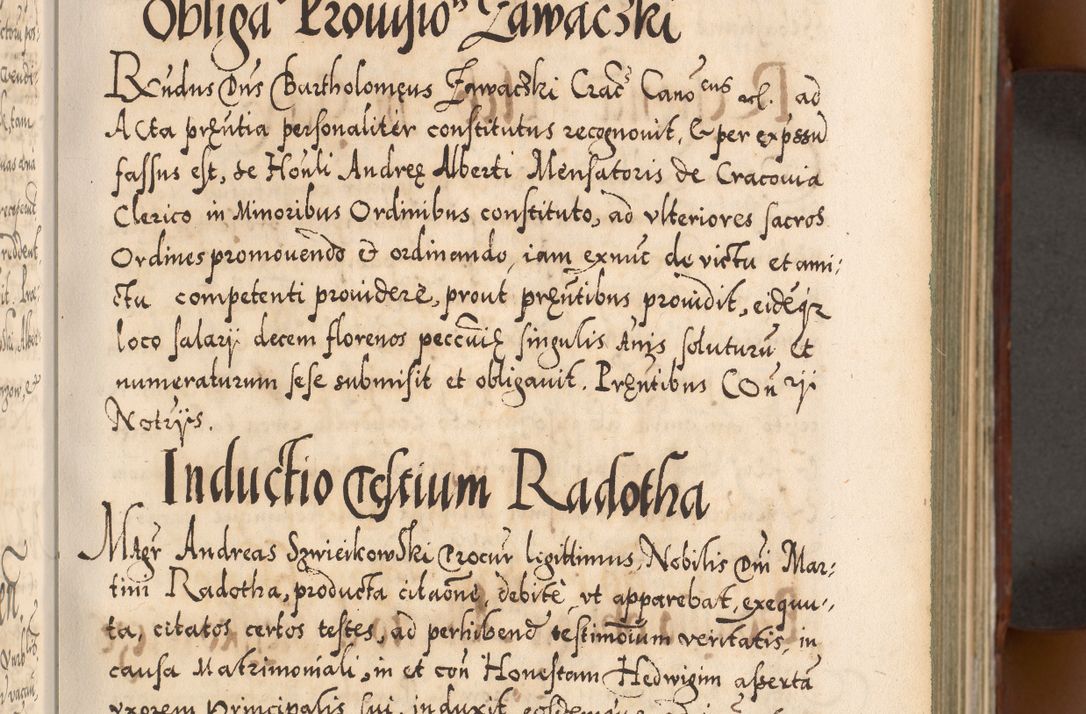 Obliga Prouisio<sup>s</sup> Zawaczki
Rndus Dns Bartholomęus Zawaczki Crac Cano<sup>cus</sup> rel. ad
Acta pręntia personaliter constitutus recognouit, & per expssu
fassus est, se Honli Andreę Alberti Mensatoris de Cracouia
Clerico in Minoribus Ordinibus constituto, ad vlteriores sacros
Ordines promouendo & ordinando, iam exnuc de victu et ami:
ctu competenti prouidere, prout pręntibus prouidit, eideqz
loco salarij decem florenos peccunię singulis Anis soluturu et
numeraturum sese submisit et obligauit. Pręntibus Con rij
Notrijs.
Inductio Testium Radotha
Magr Andreas Szwieikowski Procur legittimus, Nobilis Dni Mar:
tini Radotha, producta citaone, debite vt apparebat, exequu:
ta, citatos certos testes, ad perhibend testimoium veritatis, in
causa Matrimoniali, in et con Honestam Hedwigim asserta
vxorem Principalis sui, induxit